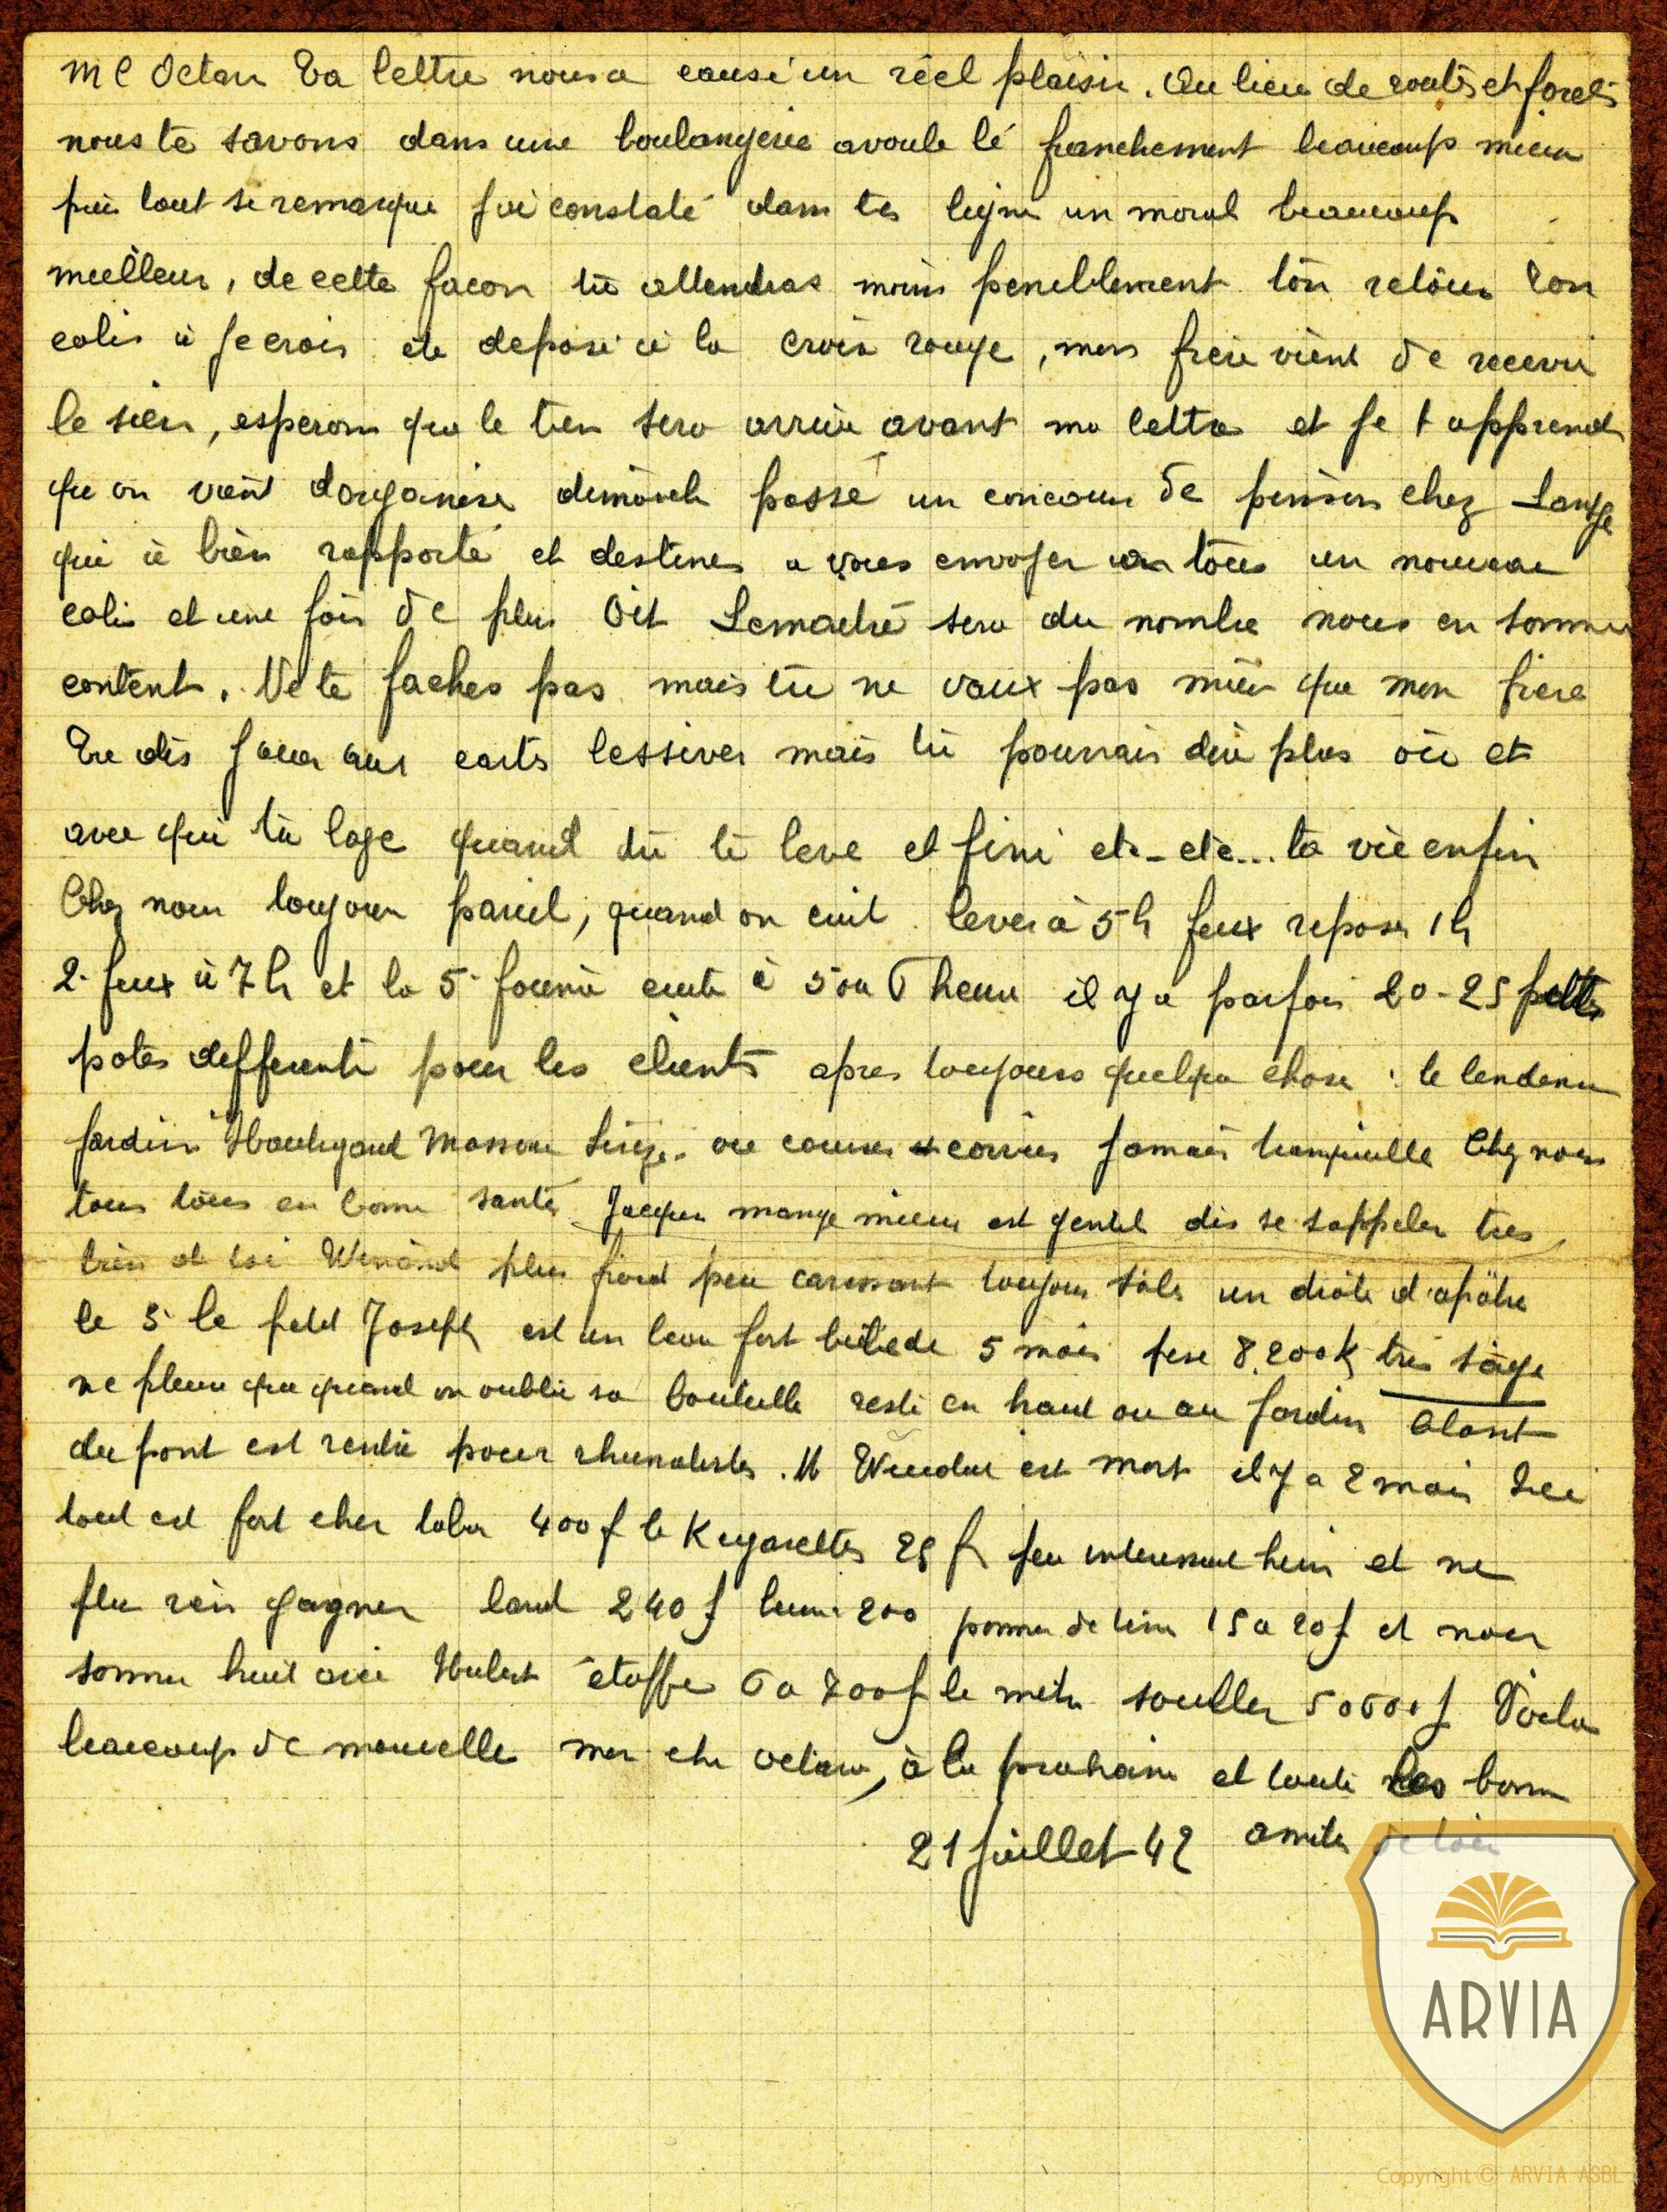 Mc Octave Ta lettre nous a causé un réel plaisir. Au lieu de routes et forets
nous te savons dans une boulangerie avoule lé franchement beaucoup mieux
puis tout se remarque j'ai constaté dans tes ligne un moral beaucoup
meilleur, de cette facon tu attendras moins peniblement ton retour Ton
colis à je crois ete deposé à la croix rouge, mon frere vient de recevoir
le sien, esperons que le tien sera arrivé avant ma lettre et je t apprend
qu on vient dorganiser dimanch passé un concour de pinson chez
qui à bien rapporté et destiner a vous envoyer a tous un nouveau
colis et une fois de plus Oct Lemaitre sera du nombre nous en sommes
contents. Ne te faches pas mais tu ne vaux pas mieu que mon frere
Tu dis jouer aux carts lessiver mais tu pourrais dire plus où et
avec qui tu loge quand tu te leve et fini etc - etc... ta vie enfin
Chez nous toujours pareil, quand on cuit lever à 5 h feux repose 1 h
2. feux à 7 h et la 5. fournée cuite à 5 ou 6 heure il y a parfois 20 - 25 petits
potes differents pour les clients apres toujours quelque chose : le lendemain
jardin Houtigout ou courses corvées jamais tranquille Chez nous
tous tous en bonne santé Jacques mange mieux est gentil dis se rappeler tres
bien de toi Winand plus froid peu caressant toujours sale un drole d'apôtre
le 3. le petit Joseph est un beau fort bébé de 5 mois pese 8.200 K très sage
ne pleure que quand on oublie sa bouteille reste en haut ou au jardin
du pont est rentré pour rhumatistes. M est mort il y a 2 mois Ici
tout est fort cher tabac 400 f le K cigarettes 25 f peu interessant hein et ne
plu rien gagner lard 240 f beurre 200 pomme de terre 15 a 20 f et nous
somme huit avec Hubert étoffe 6 a 700 f le metre soullier 5 a 600 f Voila
beaucoup de nouvelle mon cher octave, à la prochaine et toute les bonne
21 juillet 42 amities de tous
ARVIA
Copyright © ARVIA ASBL